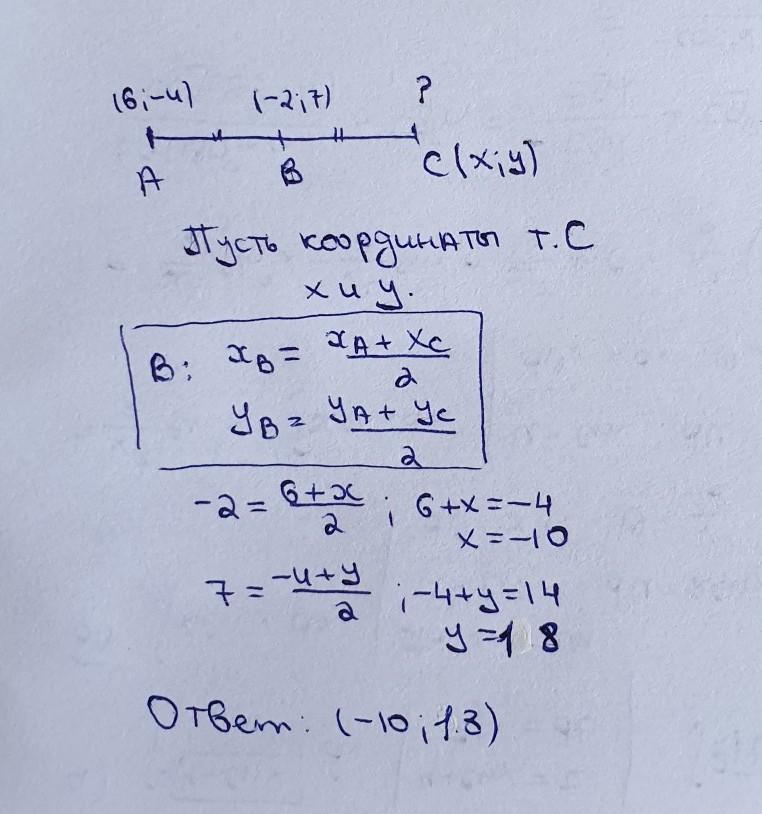 (6;-4) (-2;7) ?
A B C(x;y)
Пусть координаты т. С
х и у.
B: x_B = (x_A + x_C)/2
y_B = (y_A + y_C)/2
-2 = (6+x)/2 ; 6+x=-4
x=-10
7 = (-4+y)/2 ; -4+y=14
y=18
Ответ: (-10; 18)